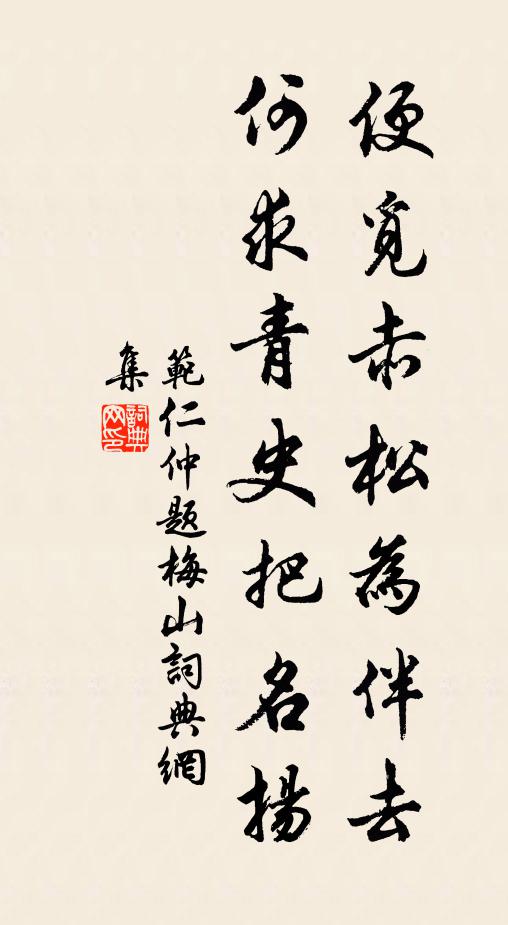 便覓赤松為伴去
何求青史把名揚
範仁仲题梅山詞典網
集
詞典网印